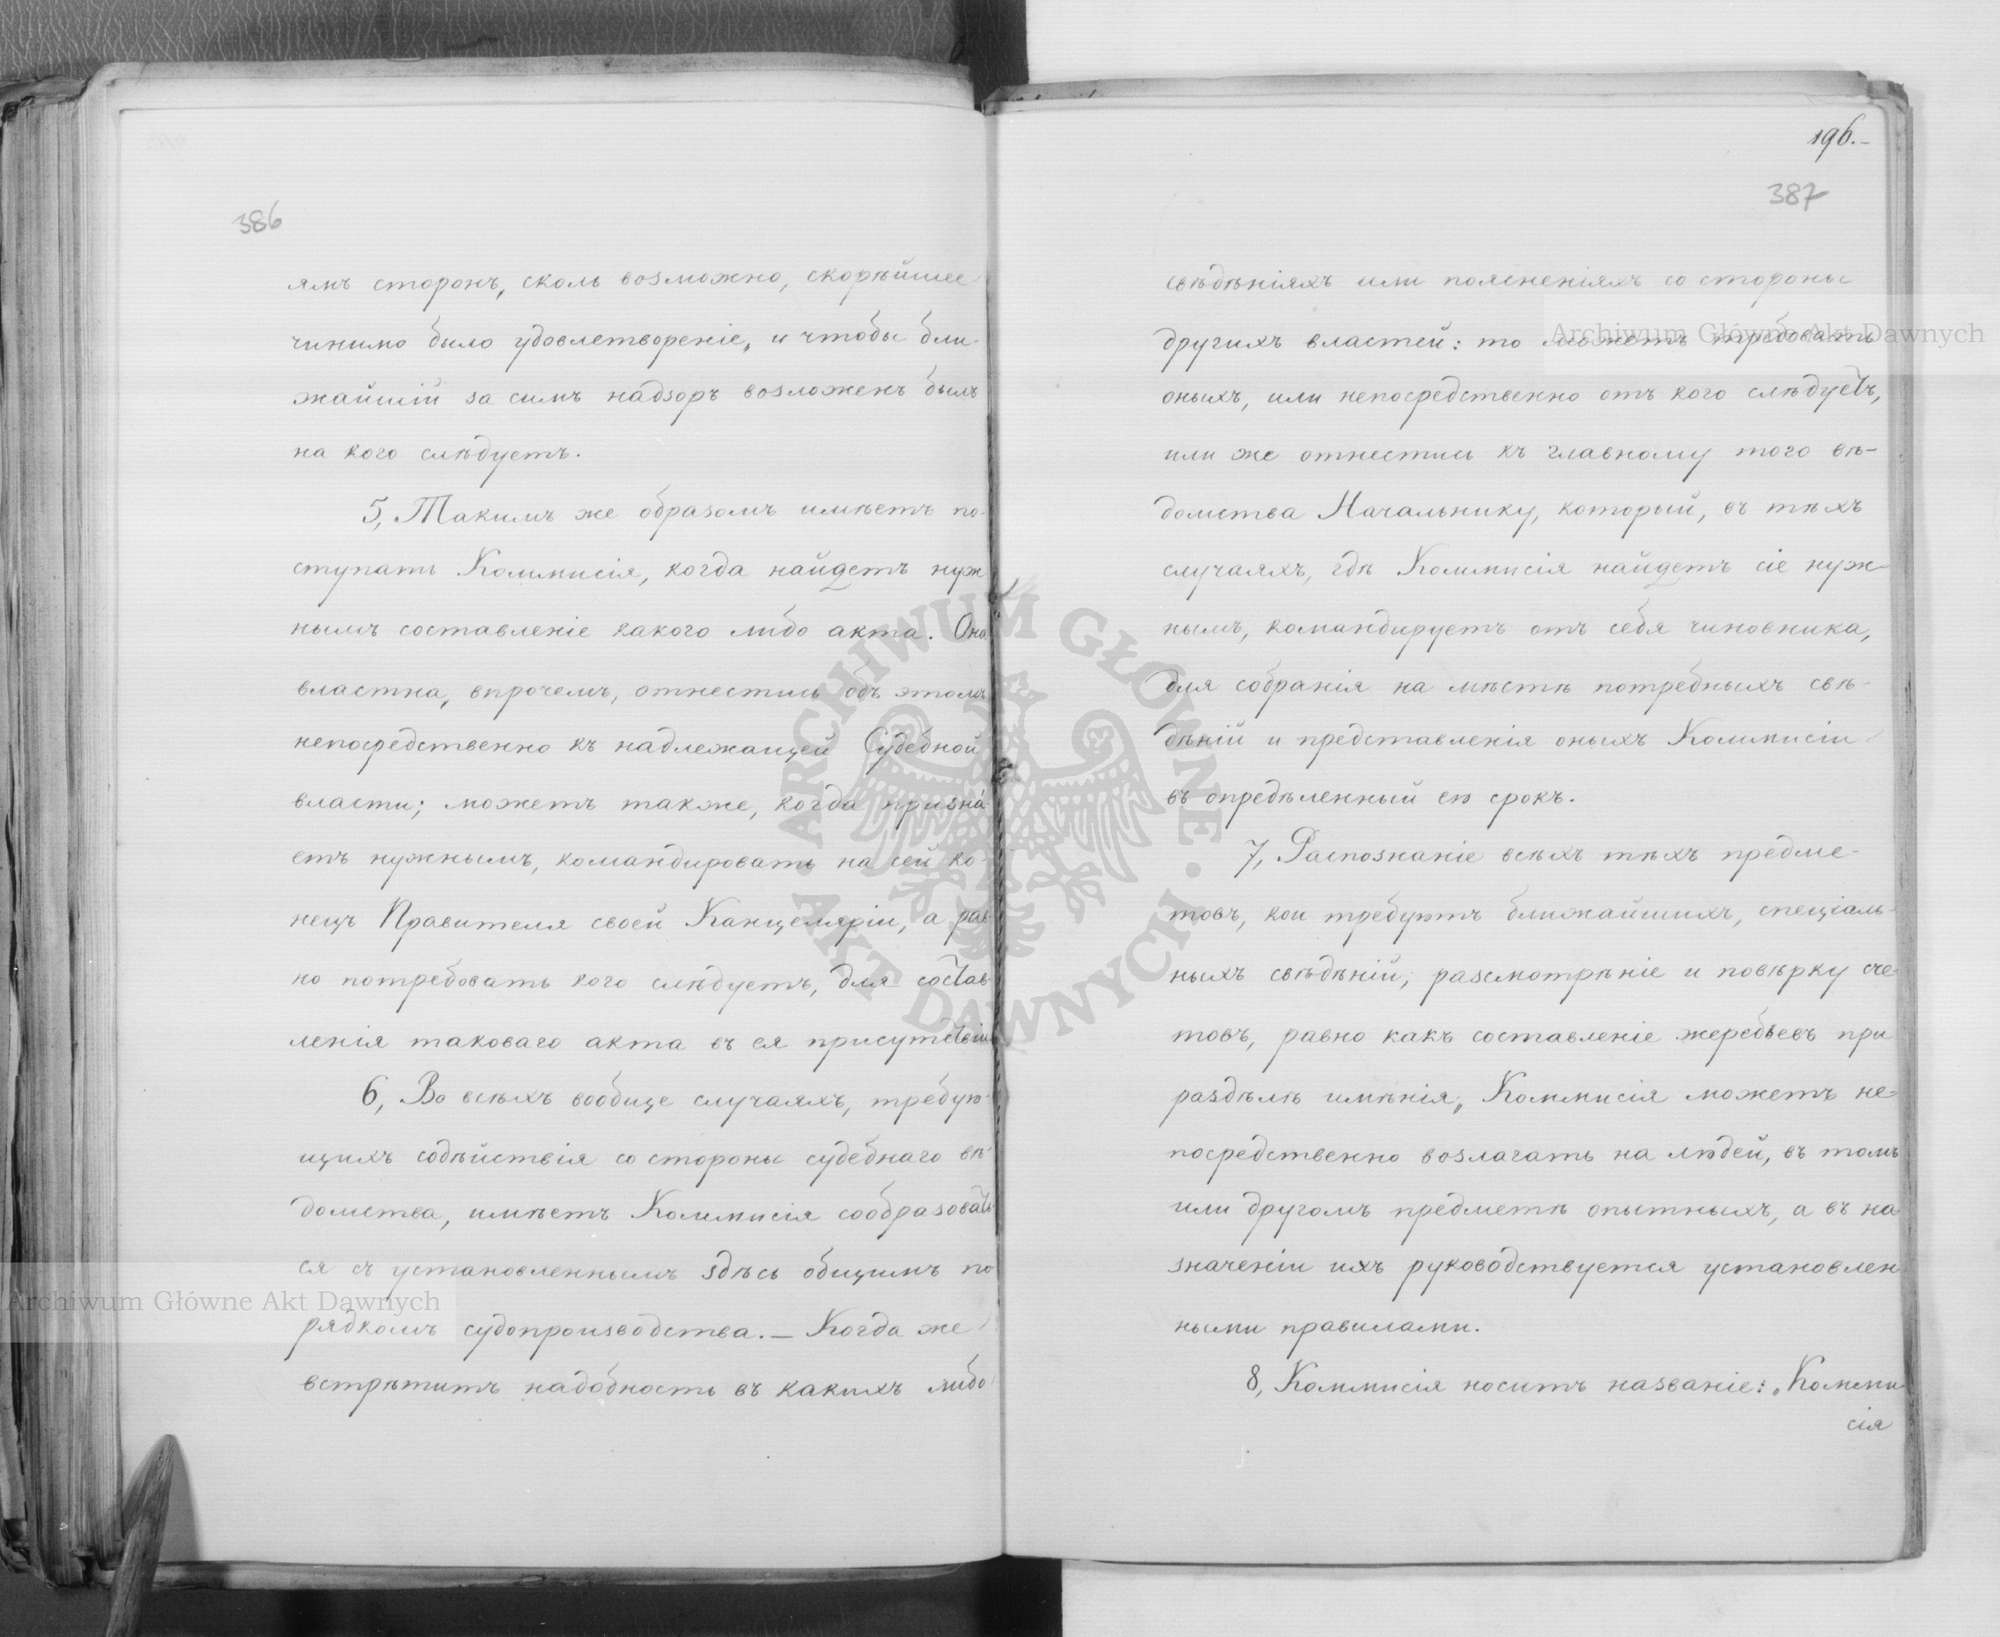 386
ямъ сторонъ, сколь возможно, скорѣйшее
чинимо было удовлетвореніе, и чтобы бли-
жайшій за симъ надзоръ возложенъ былъ
на кого слѣдуетъ.
5, Такимъ же образомъ имѣетъ по-
ступать Коммисія, когда найдетъ нуж
нымъ составленіе какого либо акта. Она
властна, впрочемъ, отнестись объ этомъ
непосредственно къ надлежащей Судебной
власти; можетъ также, когда призна-
етъ нужнымъ, командировать на сей ко-
нецъ Правителя своей Канцеляріи, а рав-
но потребовать кого слѣдуетъ, для состав-
ленія таковаго акта въ ея присутствіи
6, Во всѣхъ вообще случаяхъ, требую-
щихъ содѣйствія со стороны судебнаго вѣ-
домства, имѣетъ Коммисія сообразовать
ся съ установленнымъ здѣсь общимъ по
рядкомъ судопроизводства. — Когда же
встрѣтитъ надобность въ какихъ либо
196.-
387
свѣдѣніяхъ или поясненіяхъ со стороны
другихъ властей: то можетъ требовать
оныхъ, или непосредственно отъ кого слѣдуетъ,
или же отнестись къ главному того вѣ-
домства Начальнику, который, въ тѣхъ
случаяхъ, гдѣ Коммисія найдетъ сіе нуж-
нымъ, командируетъ отъ себя чиновника,
для собранія на мѣстѣ потребныхъ свѣ-
дѣній и представленія оныхъ Коммисіи
въ опредѣленный ею срокъ.
7, Распознаніе всѣхъ тѣхъ предме-
товъ, кои требуютъ ближайшихъ, спеціаль-
ныхъ свѣдѣній, разсмотрѣніе и повѣрку сче-
товъ, равно какъ составленіе жеребьевъ при
раздѣлѣ имѣнія, Коммисія можетъ не-
посредственно возлагать на людей, въ томъ
или другомъ предметѣ опытныхъ, а въ на
значеніи ихъ руководствуется установлен
ными правилами.
8, Коммисія носитъ названіе: „Комми
сія
Archiwum Główne Akt Dawnych
Archiwum Główne Akt Dawnych
ARCHIWUM GŁÓWNE · AKT DAWNYCH ·